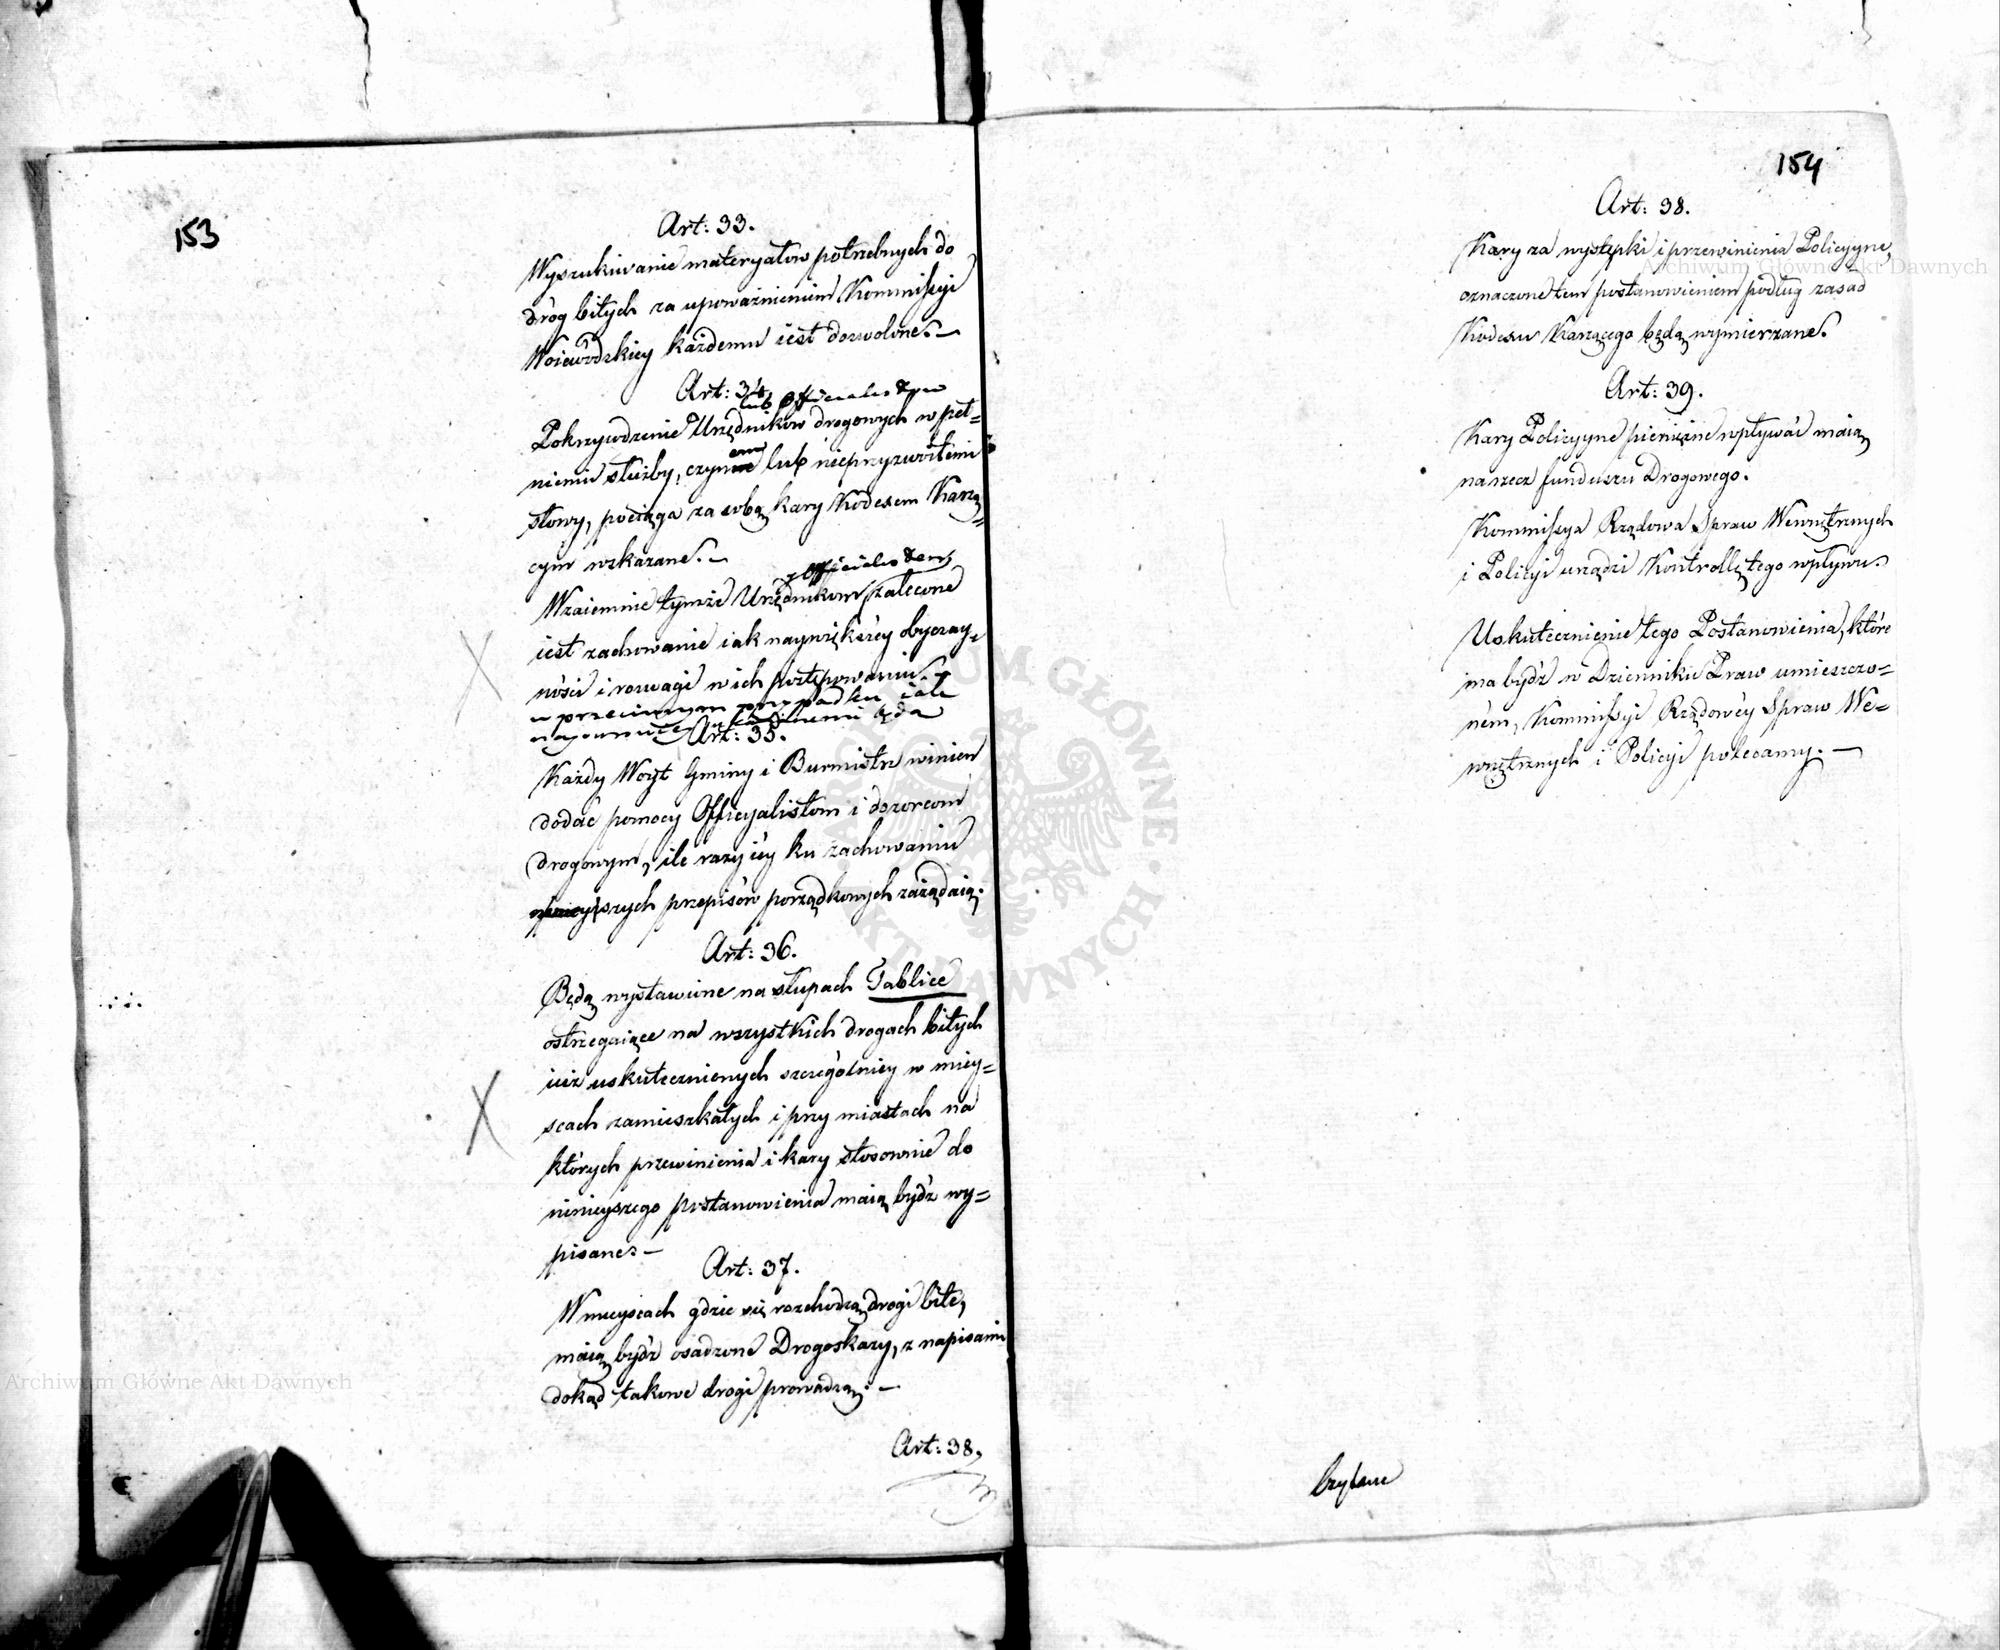 153
Art: 33.
Wyszukiwanie materyałow potrzebnych do
dróg bitych za upoważnieniem Kommissyi
Woiewódzkiey każdemu iest dozwolone. –
Art: 34.
lub Officialistow
Pokrzywdzenie Urzędników drogowych w peł=
nieniu służby, czynne lub nieprzyzwoitemi
em
słowy, pociąga za sobą kary Kodexem Karzą=
cym wskazane. –
y Officialistom,
Wzaiemnie tymże Urzędnikom zalecone
iest zachowanie iak naywiększéy obyczay=
ności i rozwagi w ich postępowaniu. –
w przeciwnym przypadku
będą
Art: 35.
Każdy Woyt Gminy i Burmistrz winien
dodać pomocy Officyalistom i dozorcom
drogowym, ile razy iéy ku zachowaniu
szych przepisów porządkowych zażądaią.
Art: 36.
Będą wystawione na słupach Tablice
ostrzegaiące na wszystkich drogach bitych
iuż uskutecznionych szczególniey w miey=
scach zamieszkałych i przy miastach na
których przewinienia i kary stosownie do
ninieyszego postanowienia maią bydź wy=
pisane. –
Art: 37.
W mieyscach gdzie się rozchodzą drogi bite,
maią bydź osadzone Drogoskazy, z napisami
dokąd takowe drogi prowadzą. –
Art: 38.
154
Art: 38.
Kary za występki i przewinienia Policyyne,
oznaczone tem postanowieniem podług zasad
Kodexu Karzącego będą wymierzane.
Art: 39.
Kary Policyyne pieniężne wpływać maią
na rzecz funduszu Drogowego.
Kommissya Rządowa Spraw Wewnętrznych
i Policyi urządzi Kontrollę tego wpływu.
Uskutecznienie tego Postanowienia, które
ma bydź w Dzienniku Praw umieszczo=
ném, Kommissyi Rządowéy Spraw We=
wnętrznych i Policyi polecamy. –
Czytane
Archiwum Główne Akt Dawnych
Archiwum Główne Akt Dawnych
ARCHIWUM GŁÓWNE AKT DAWNYCH